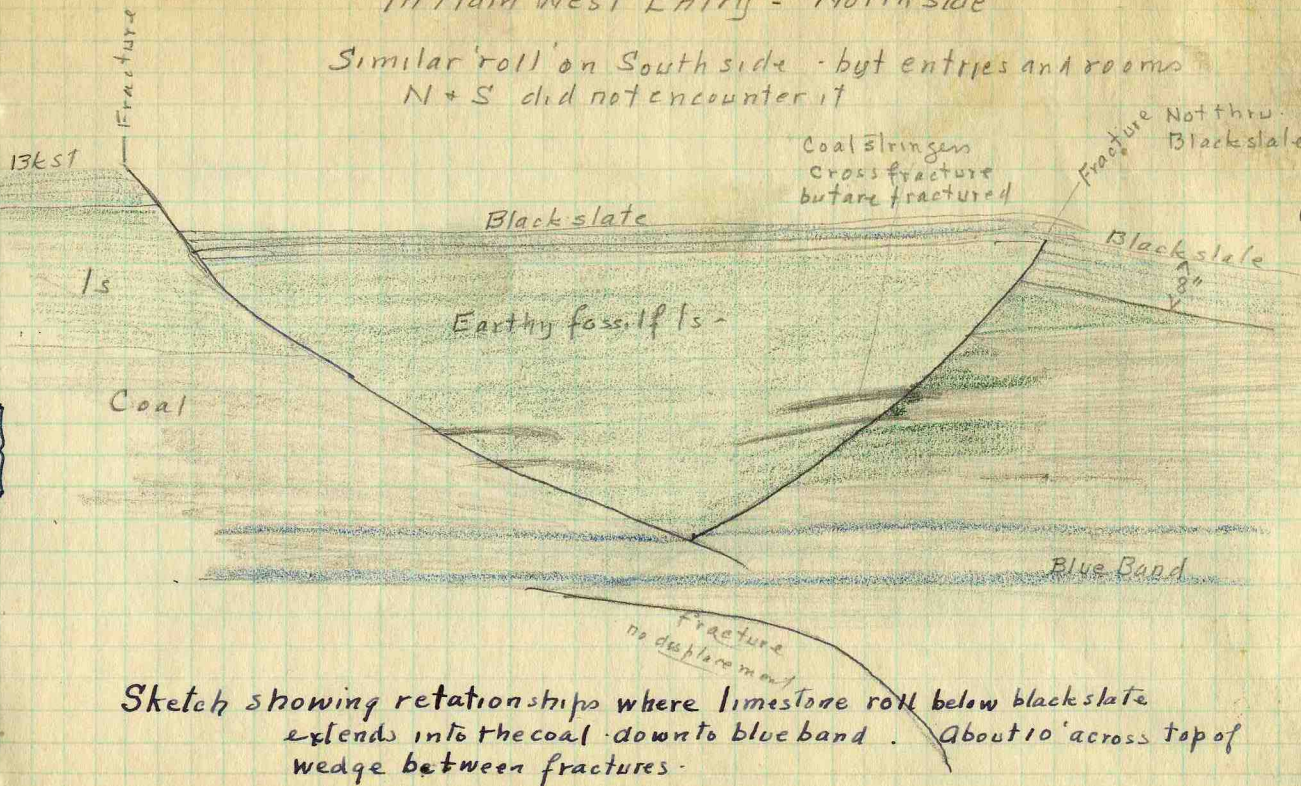 In Main West Entry - North side
Similar 'roll' on South side - but entries and rooms
N + S did not encounter it
Fracture
Bkst
Coal stringers
cross fracture
but are fractured
Fracture
Not thru
Blackslate
Black slate
Blackslate
8"
ls
Earthy fossilf ls -
Coal
Blue Band
fracture
no displacement
Sketch showing relationships where limestone roll below blackslate
extends into the coal down to blue band. About 10' across top of
wedge between fractures.